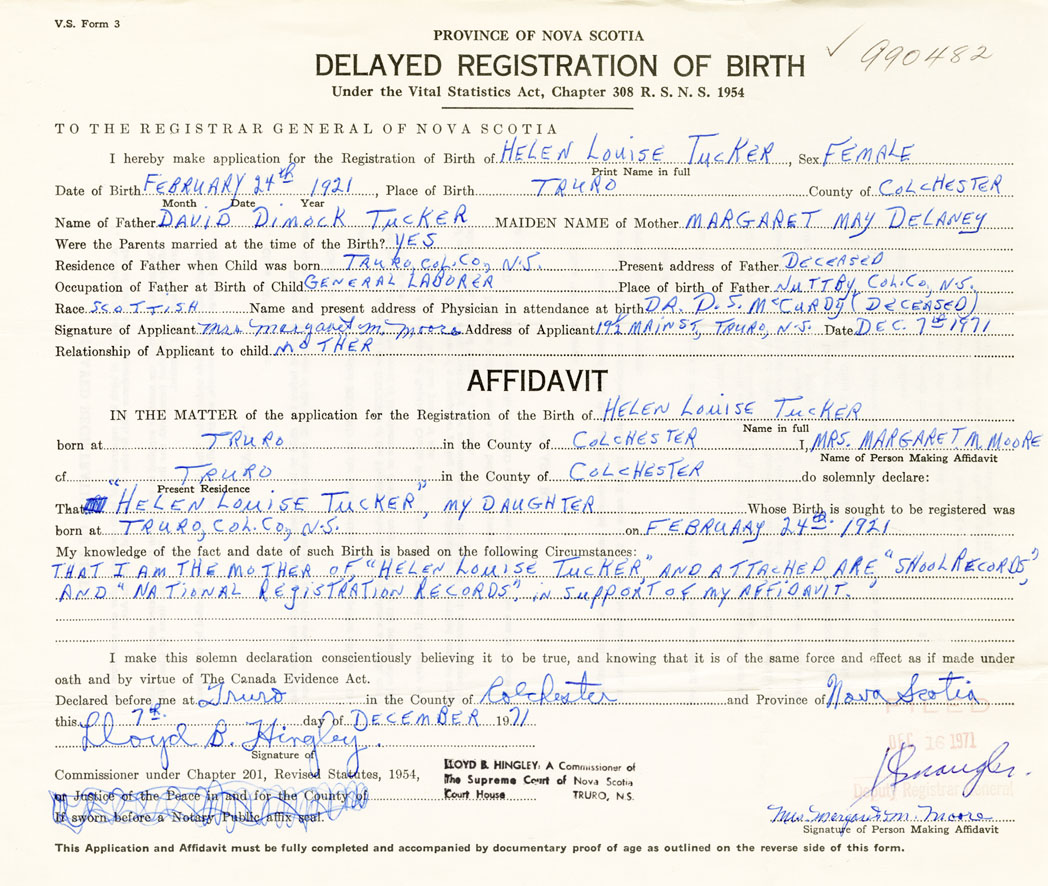 V.S. Form 3
PROVINCE OF NOVA SCOTIA
✓ 990482
DELAYED REGISTRATION OF BIRTH
Under the Vital Statistics Act, Chapter 308 R. S. N. S. 1954
TO THE REGISTRAR GENERAL OF NOVA SCOTIA
I hereby make application for the Registration of Birth of HELEN LOUISE TUCKER, Sex FEMALE
Print Name in full
Date of Birth FEBRUARY 24th 1921, Place of Birth TRURO County of COLCHESTER
Month Date Year
Name of Father DAVID DIMOCK TUCKER MAIDEN NAME of Mother MARGARET MAY DELANEY
Were the Parents married at the time of the Birth? YES
Residence of Father when Child was born TRURO, COL. CO., N.S. Present address of Father DECEASED
Occupation of Father at Birth of Child GENERAL LABORER Place of birth of Father NUTTBY, COL. CO., N.S.
Race SCOTTISH Name and present address of Physician in attendance at birth DR. D.S. McCURDY (DECEASED)
Signature of Applicant Mrs Margaret M. Moore Address of Applicant MAIN ST, TRURO, N.S. Date DEC. 7th 1971
Relationship of Applicant to child MOTHER
AFFIDAVIT
IN THE MATTER of the application for the Registration of the Birth of HELEN LOUISE TUCKER
Name in full
born at TRURO in the County of COLCHESTER I, MRS. MARGARET M. MOORE
Name of Person Making Affidavit
of TRURO in the County of COLCHESTER do solemnly declare:
Present Residence
That "HELEN LOUISE TUCKER", MY DAUGHTER Whose Birth is sought to be registered was
born at TRURO, COL. CO., N.S. on FEBRUARY 24th 1921
My knowledge of the fact and date of such Birth is based on the following Circumstances:
THAT I AM THE MOTHER OF "HELEN LOUISE TUCKER" AND ATTACHED ARE "SHOOL RECORDS",
AND "NATIONAL REGISTRATION RECORDS", IN SUPPORT OF MY AFFIDAVIT.
I make this solemn declaration conscientiously believing it to be true, and knowing that it is of the same force and effect as if made under
oath and by virtue of The Canada Evidence Act.
Declared before me at Truro in the County of Colchester and Province of Nova Scotia
this 7th day of DECEMBER 1971
FILED
DEC 16 1971
Lloyd B. Hingley.
Signature of
Commissioner under Chapter 201, Revised Statutes, 1954,
or Justice of the Peace in and for the County of
If sworn before a Notary Public affix seal.
LLOYD B. HINGLEY, A Commissioner of
The Supreme Court of Nova Scotia
Court House TRURO, N.S.
Deputy Registrar General
Mrs. Margaret M. Moore
Signature of Person Making Affidavit
This Application and Affidavit must be fully completed and accompanied by documentary proof of age as outlined on the reverse side of this form.